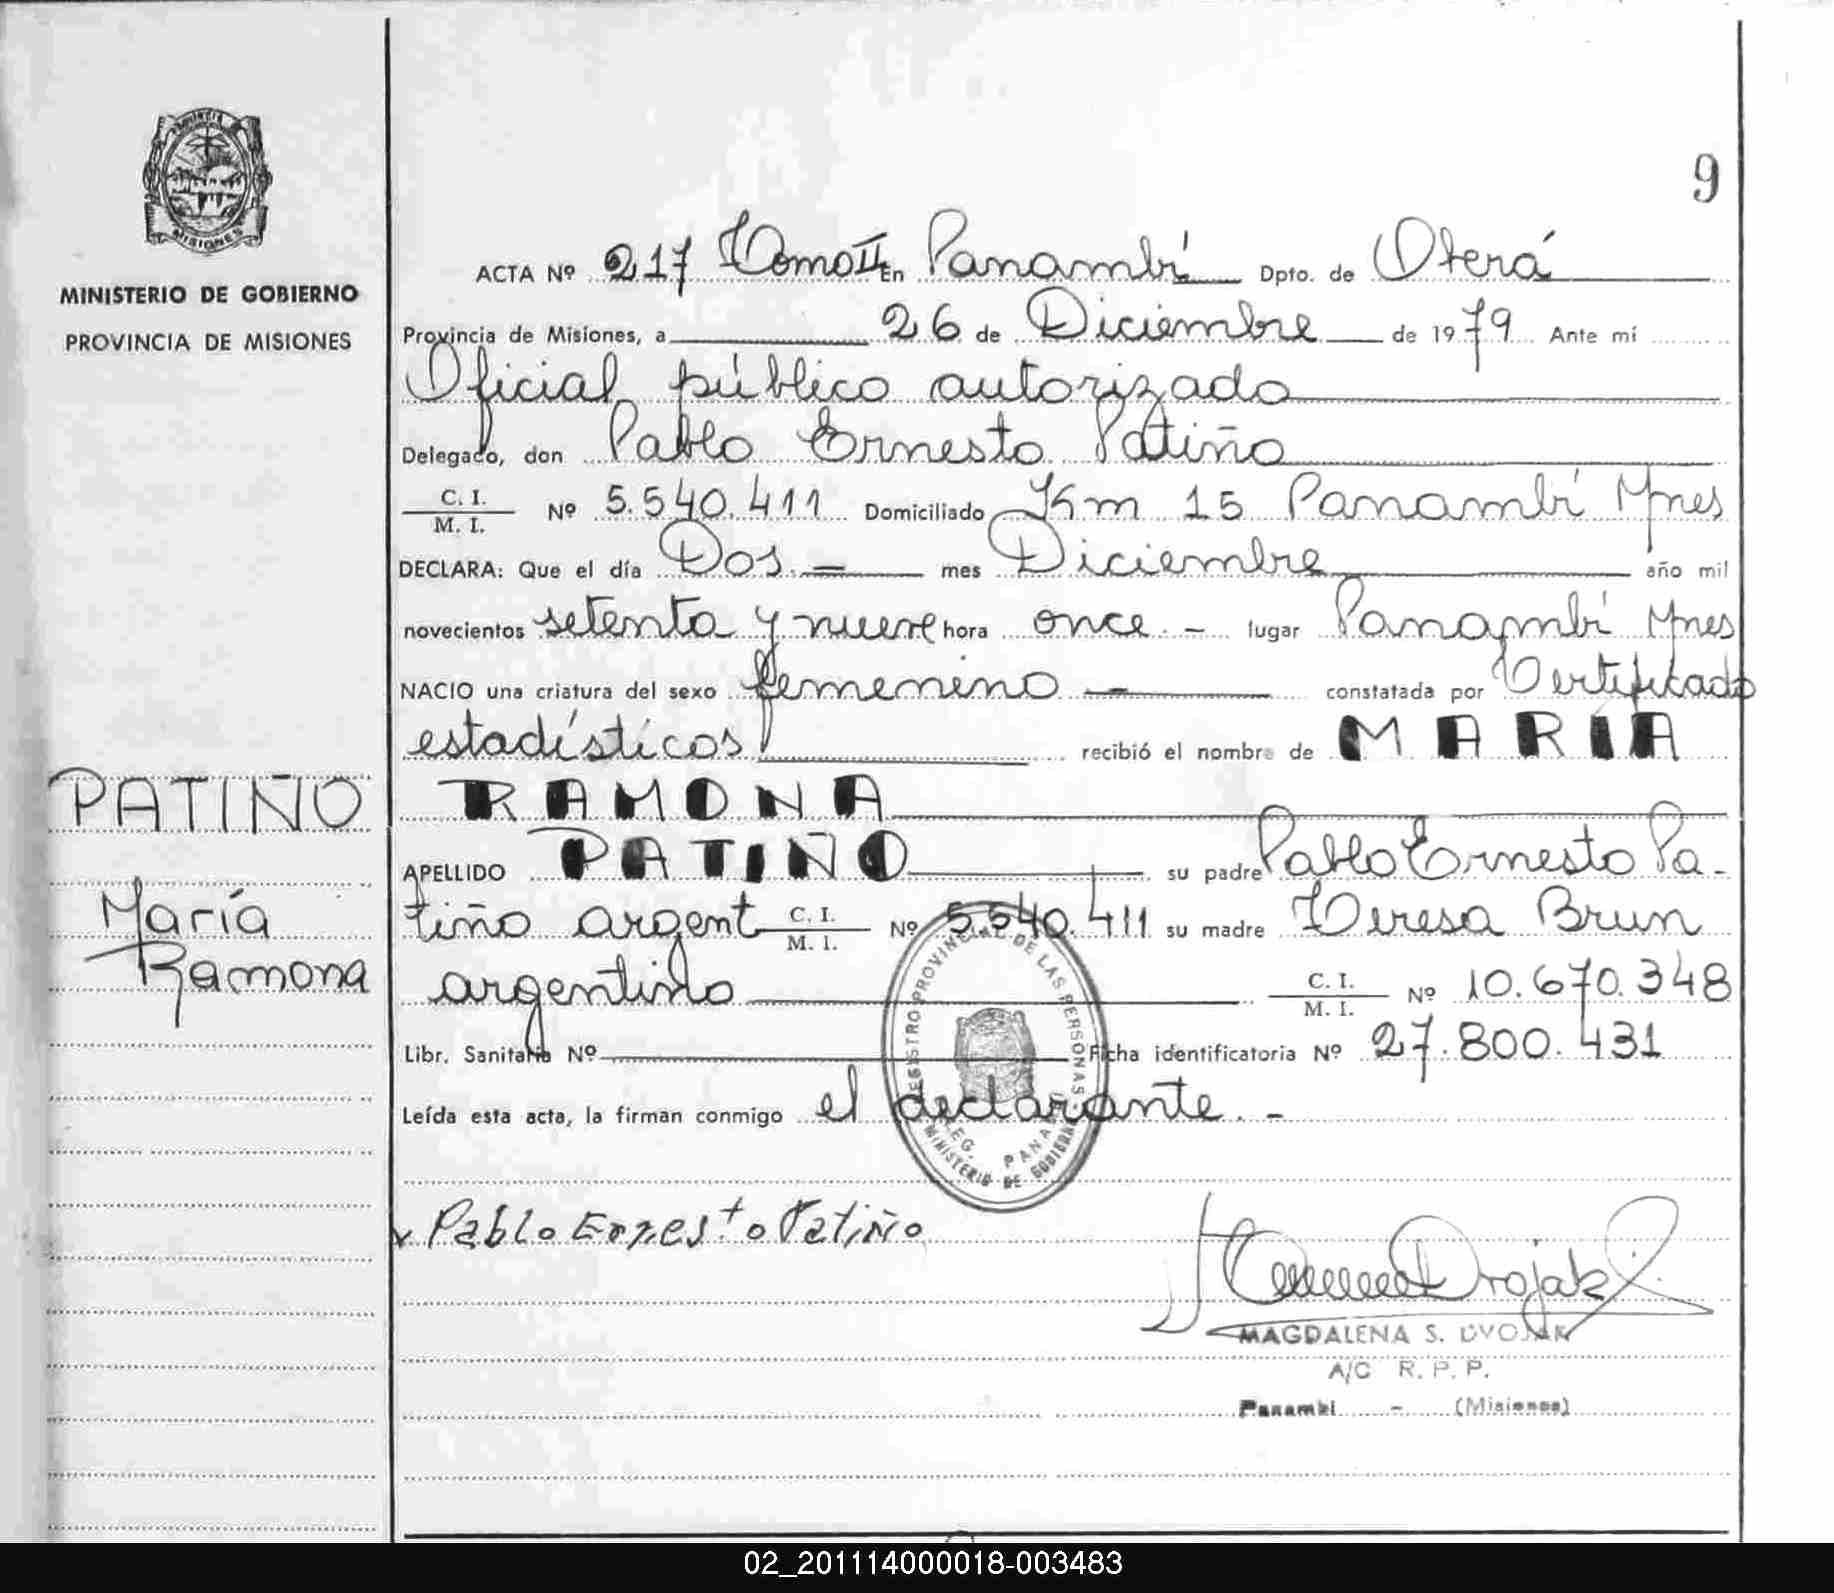 MISIONES
MINISTERIO DE GOBIERNO
PROVINCIA DE MISIONES
PATIÑO
María
Ramona
9
ACTA Nº 217 Tomo II En Panambí Dpto. de Oberá
Provincia de Misiones, a 26 de Diciembre de 1979 Ante mí
Oficial público autorizado
Delegado, don Pablo Ernesto Patiño
C. I.
M. I. Nº 5.540.411 Domiciliado Km 15 Panambí Mnes
DECLARA: Que el día Dos.- mes Diciembre año mil
novecientos setenta y nueve hora once.- lugar Panambí Mnes
NACIO una criatura del sexo femenino - constatada por Certificado
estadísticos recibió el nombre de MARIA
RAMONA
APELLIDO PATIÑO su padre Pablo Ernesto Pa-
tiño argent C. I. M. I. Nº 5.540.411 su madre Teresa Brun
argentina C. I. M. I. Nº 10.670.348
Libr. Sanitaria Nº Ficha identificatoria Nº 27.800.431
Leída esta acta, la firman conmigo el declarante.-
REGISTRO PROVINCIAL DE LAS PERSONAS
MINISTERIO DE GOBIERNO
Pablo Ernesto Patiño
MAGDALENA S. DVOJAK
A/C R. P. P.
Panambí - (Misiones)
02_201114000018-003483